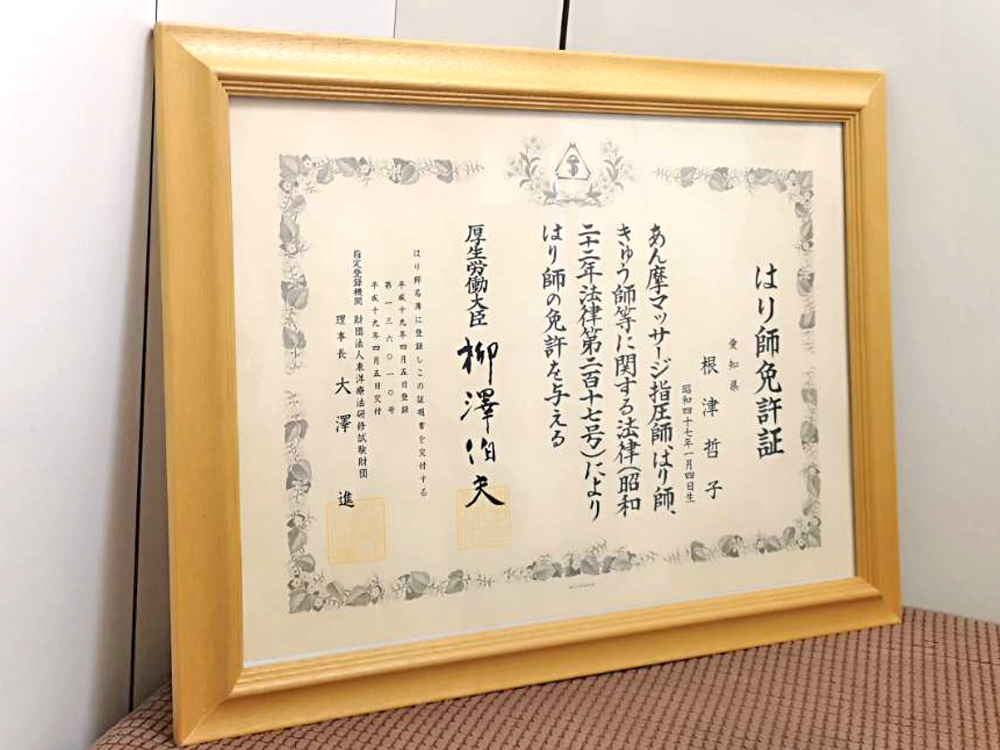 はり師免許証
愛知県
根津哲子
昭和四十七年一月四日生
あん摩マッサージ指圧師、はり師、
きゅう師等に関する法律(昭和
二十二年法律第二百十七号)により
はり師の免許を与える
厚生労働大臣 柳澤伯夫
はり師名簿に登録しこの証明書を交付する
平成十九年四月五日登録
第一三六〇一〇号
平成十九年四月五日交付
指定登録機関 財団法人東洋療法研修試験財団
理事長 大澤 進